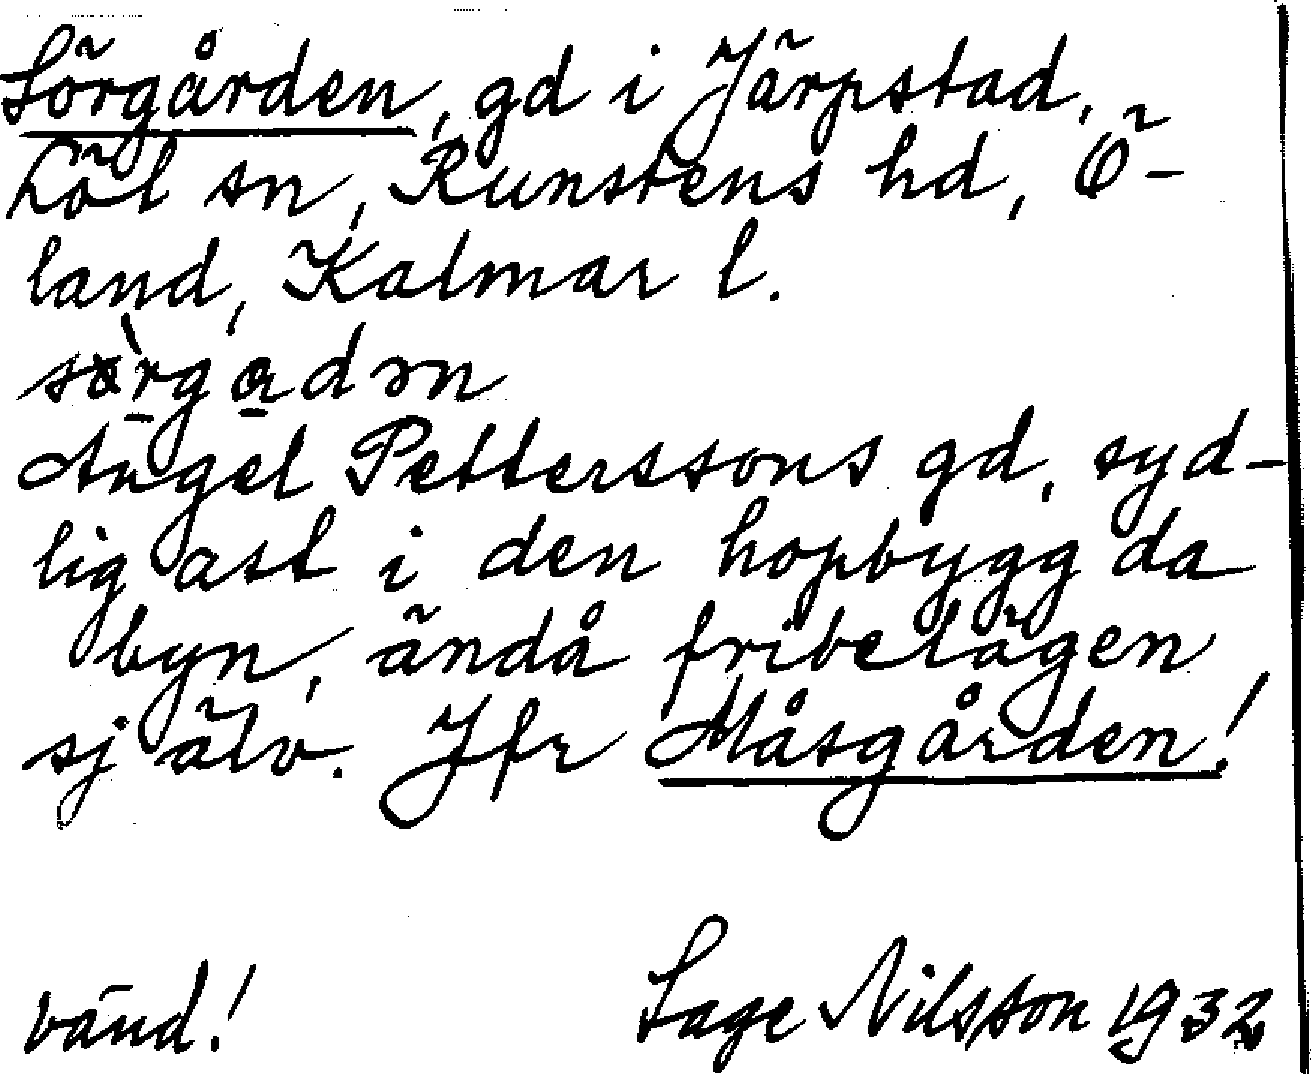 Sörgården, gd i Järpstad,
Löl sn, Runstens hd, Ö-
land, Kalmar l.
sö̀rgadən
Angel Petterssons gd, syd-
ligast i den hopbyggda
byn, ändå fribelägen
själv. Jfr Måsgården!
vänd! Sage Nilsson 1932